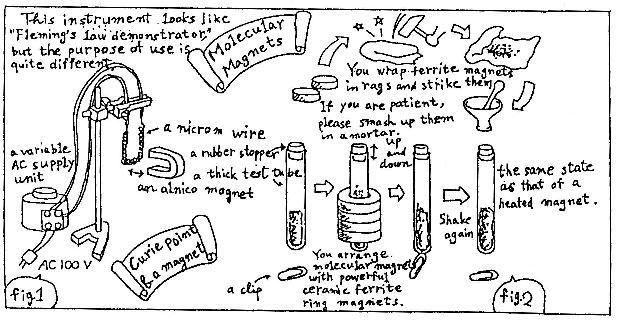 This instrument looks like
"Fleming's law demonstrator"
but the purpose of use is
quite different.
Molecular
Magnets
a nicrom wire
a variable
AC supply
unit
an alnico magnet
AC 100 V
Curie point
& a magnet
fig.1
You wrap ferrite magnets
in rags and strike them
If you are patient,
please smash up them
in a mortar.
a rubber stopper
a thick test tube
up
and
down
a clip
You arrange
molecular magnet
with powerful
ceramic ferrite
ring magnets.
Shake
again
the same state
as that of a
heated magnet.
fig.2